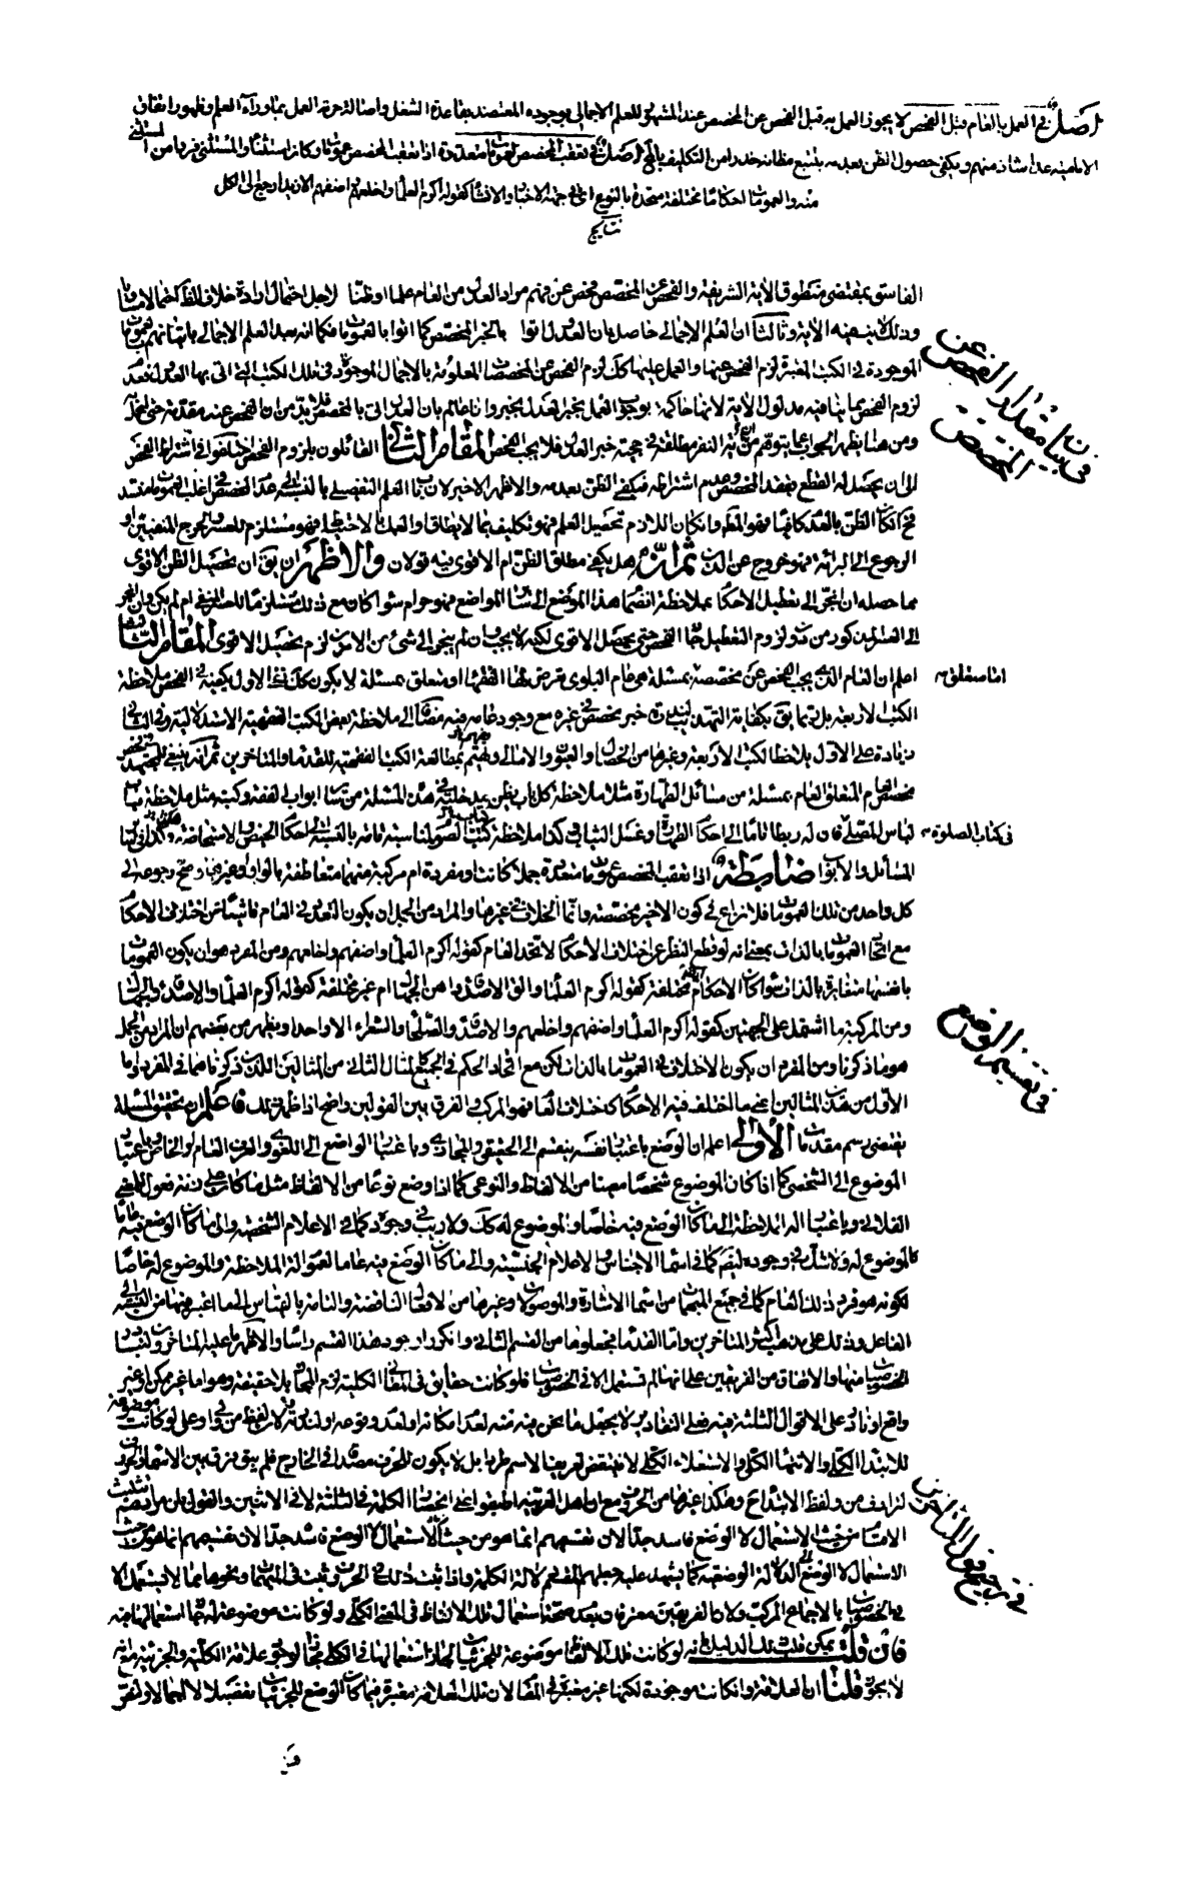 اصل في العمل بالعام قبل الفحص لا يجوز العمل به قبل الفحص عن المخصص عند المشهور للعلم الاجمالي بوجوده المعتضد بقاعدة الشغل واصالة حرمة العمل بماوراء العلم وظهور اتفاق
الامامية عدا شاذ منهم ويكفي حصول الظن بعدمه بتتبع مظانه حذرا من التكليف اصل في تعقب المخصص لعمومات متعددة اذا تعقب المخصص عمومات وكان استثناء والمستثنى فردا من المستثنى
منه والعمومات احكاما مختلفة متحدة بالنوع اي في جهة الاخبار والانشاء كقوله اكرم العلماء واخلعهم واضفهم الا زيدا رجع الى الكل
نتايج
الفاسق بمقتضى منطوق الاية الشريفة والفحص عن المخصص فحص عن فهم مراد العدل من العام علما او ظنا لاجل احتمال ارادة خلاف الظاهر
وذلك لا ينفيه الاية وثالثا ان العلم الاجمالي حاصل بان العدل اتوا بالخبر المخصص كما اتوا بالعمومات فكما انه بعد العلم الاجمالي
الموجودة في الكتب المعتبرة لزم الفحص عنها والعمل عليها كك لزم الفحص عن المخصصات المعلومة بالاجمال الموجودة في تلك الكتب التي اتى بها العدل
لزوم الفحص مدلول الاية لانها حاكمة بوجوب العمل بخبر العدل بخبر وانا عالم بان العدل اتى بالمخصص فلابد من ان الفحص عنه مقدمة
ومن هنا يظهر الجواب عما يتوهم من ان اية النفر مطلقة في حجية خبر العدل فلا يجب الفحص المقام الثاني القائلون بلزوم الفحص اختلفوا في اشتراط الفحص
الى ان يحصل له القطع بفقد المخصص وعدم اشتراطه فيكفي الظن بعدمه والاظهر الاخير لان بناء العلم التفصيلي بالنسبة الى عدم المخصص في اغلب العمومات
فح انكان الظن بالعدم كافيا فهو المط وانكان اللازم تحصيل العلم فهو تكليف بما لا يطاق والعمل بالاحتياط فهو مستلزم للعسر والحرج المنفيين او
الرجوع الى البرائة فهو خروج عن الدين ثم انه هل يكفي مطلق الظن ام الاقوى فيه قولان والاظهر ان يق ان تحصيل الظن الاقوى
مما حصله ان انجر الى تعطيل الاحكام بملاحظة انضمام هذا الموضع الى سائر المواضع فهو حرام سواء كان مع ذلك مستلزما للعسر
الى العسر المذكور من دون لزوم التعطيل حتى يحصل الاقوى لكنه لا يجب وان لم ينجر الى شيء من الامرين لزم تحصيل الاقوى المقام الثالث
اعلم ان العام الذي يجب الفحص عن مخصصه بمسئلة هي عام البلوى تعرض لها الفقهاء او متعلق بمسئلة لا يكون كك ففي الاول يكفيه في الفحص ملاحظة
اما متعلق
الكتب الاربعة بل ربما يق بكفاية التهذيب خبر مخصص في غيره مع وجود عامه فيه مضافا الى ملاحظة بعض الكتب الفقهية الاستدلالية وفي الثاني
زيادة على الاول يلاحظ الكتب الاربعة وغيرها من الخصال والعيون والامالي ويهتم بمطالعة الكتب الفقهية للقدماء والمتاخرين ثم انه ينبغي للمجتهد
مخصص العام المتعلق بمسئلة من مسائل الطهارة مثلا ملاحظة كل باب يظن مدخلية في هذه المسئلة من سائر ابواب الفقه وكتبه مثل ملاحظة
لباس المصلي فان له ربطا تاما الى احكام الطهارة وغسل الثياب وكذا ملاحظة كتاب الصوم مناسبة تامة بالنسبة الى احكام الحيض والاستحاضة
في كتاب الصلوة
المسائل والابواب ضابطة اذا تعقب المخصص عمومات متعددة جملا كانت او مفردة ام مركبة منهما متعاطفة بالواو وغيره وصح رجوعه الى
كل واحد من تلك العمومات فلا نزاع في كون الاخير مخصصة وانما الخلاف في غيرها والمراد من الجمل ان يكون التعدد في العام ناشئا من اختلاف الاحكام
مع اتحاد العمومات بالذات بمعنى انه لو قطع النظر عن اختلاف الاحكام لاتحد العام كقوله اكرم العلماء واضفهم واخلعهم ومن المفرد هو ان يكون العمومات
بانفسها متغايرة بالذات سواء كان الاحكام مختلفة كقوله اكرم العلماء والق الاصدقاء واهن الجهال ام غير مختلفة كقوله اكرم العلماء والاصدقاء والجهال
ومن المركبة ما اشتمل على الجهتين كقوله اكرم العلماء واضفهم واخلعهم والاصدقاء والصلحاء والشعراء الا واحدا ويظهر من بعضهم ان المراد من الجمل
هو ما ذكرنا ومن المفرد ان يكون الاختلاف في العمومات بالذات لكن مع اتحاد الحكم في الجميع كالمثال الثاني من المثالين اللذين ذكرناهما في المفرد واما
الاول من هذين المثالين اعني ما اختلف فيه الاحكام كاختلاف العام فهو المركب والفرق بين القولين واضح اذا ظهر ذلك فاعلم ان تحقيق المسئلة
يقتضي رسم مقدمات الاولى اعلم ان الوضع باعتبار نفسه ينقسم الى الحقيقي والمجازي وباعتبار الواضع الى اللغوي والعرف العام والخاص وباعتبار
الموضوع الى الشخصي كما اذا كان الموضوع شخصا معينا من الالفاظ والنوعي كما اذا وضع نوعا من الالفاظ مثل ما كان على زنة مفعول للمعنى
الفلاني وباعتبار الة الملاحظة الى ما كان الوضع فيه خاصا والموضوع له كك ولا ريب في وجوده كما في الاعلام الشخصية والى ما كان الوضع فيه عاما
كالموضوع له ولا شك في وجوده ايضا كما في اسماء الاجناس والاعلام الجنسية والى ما كان الوضع فيه عاما لعموم الة الملاحظة والموضوع له خاصا
لكونه هو فرد ذلك العام كما في جميع المبهمات من اسماء الاشارة والموصولات وغيرها من الافعال الناقصة والتامة بالقياس الى ما اعتبر فيها من النسبة الى
الفاعل وذلك على مذهب اكثر المتاخرين واما القدماء فجعلوها من القسم الثاني وانكروا وجود هذا القسم راسا والاظهر ما عليه المتاخرون
الخصوصيات منها والاتفاق من الفريقين على انها لم تستعمل الا في الخصوصيات فلو كانت حقايق في المعاني الكلية لزم المجاز بلا حقيقة وهو اما غير ممكن او غير
واقع او نادر على الاقوال الثلثة فيه فعلى التقادير لا يجعل ما نحن فيه منه لعدم امكانه او لعدم وقوعه او لندرته ولان لفظ من وفي وعلى لو كانت موضوعة
للابتداء الكلي والانتهاء الكلي والاستعلاء الكلي لانتقض تعريف الاسم طردا بل لا يكون للحرف مصداق في الخارج فلم يبق فرق بين الاسماء والحروف
لترادف من ولفظ الابتداء وهكذا غيرها من الحروف مع ان اهل العربية اطبقوا على انحصار الكلمة في الثلثة لا في الاثنين والقول بان مرادهم تثليث
الاقسام من حيث الاستعمال لا الوضع فاسد جدا لان تقسيمهم انما هو من حيث
الاستعمال لا الوضع الدلالة الوضعية كما يشهد عليه جعلهم المقسم الكلمة واذا ثبت ذلك في الحروف ثبت في المبهمات ونحوها مما لا يستعمل الا
في الخصوصيات بالاجماع المركب ولان الفريقين معترفان بعدم صحة استعمال تلك الالفاظ في المعنى الكلي ولو كانت موضوعة له لصح استعمالها فيه
فان قلت يمكن قلب ذلك الدليل بانه لو كانت تلك الالفاظ موضوعة للجزئيات لجاز استعمالها في الكلي مجازا لوجود علاقة الكلية والجزئية مع انه
لا يجوز قلنا ان العلاقة وانكانت موجودة لكنها غير معتبرة في المقام لان تلك العلاقة معتبرة فيما كان الوضع للجزئيات تفصيلا لا اجمالا
في بيان مقدار الفحص عن المخصص
في تقسيم الوضع
في ترجيح قول المتاخرين